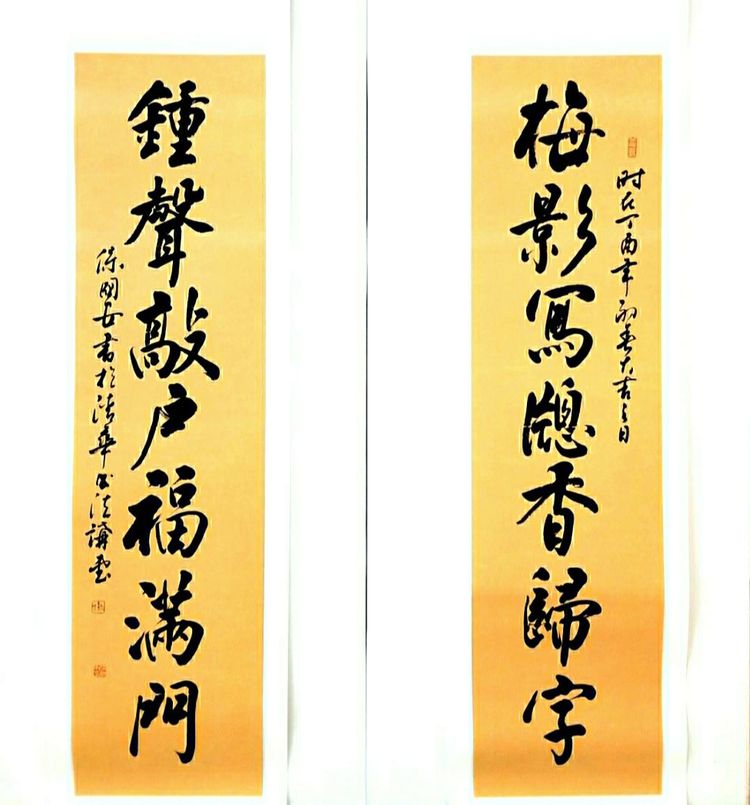 时在丁酉年初春大吉之日
梅影寫牕香歸字
鍾聲敲户福满門
国安書於清華书法講堂